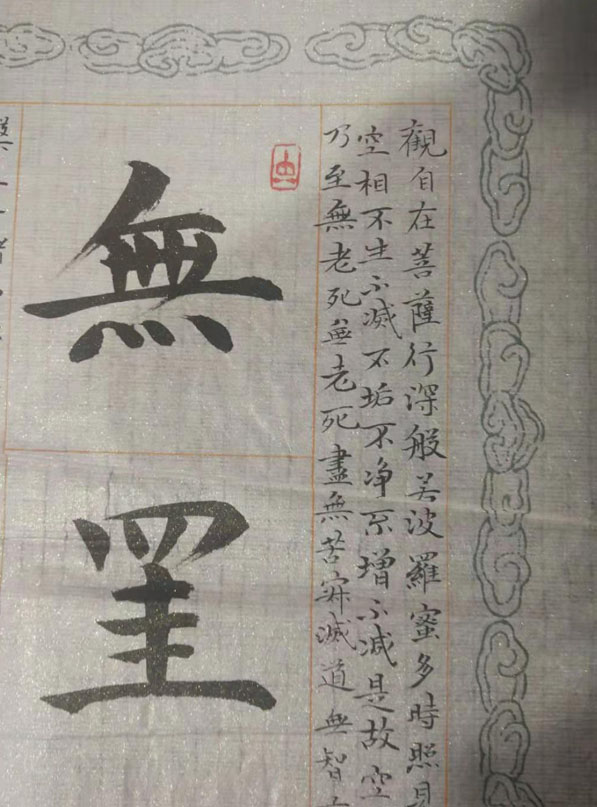 觀自在菩薩行深般若波羅蜜多時照見
空相不生不滅不垢不净不增不減是故空
乃至無老死無老死盡無苦寂滅道無智
無
罣